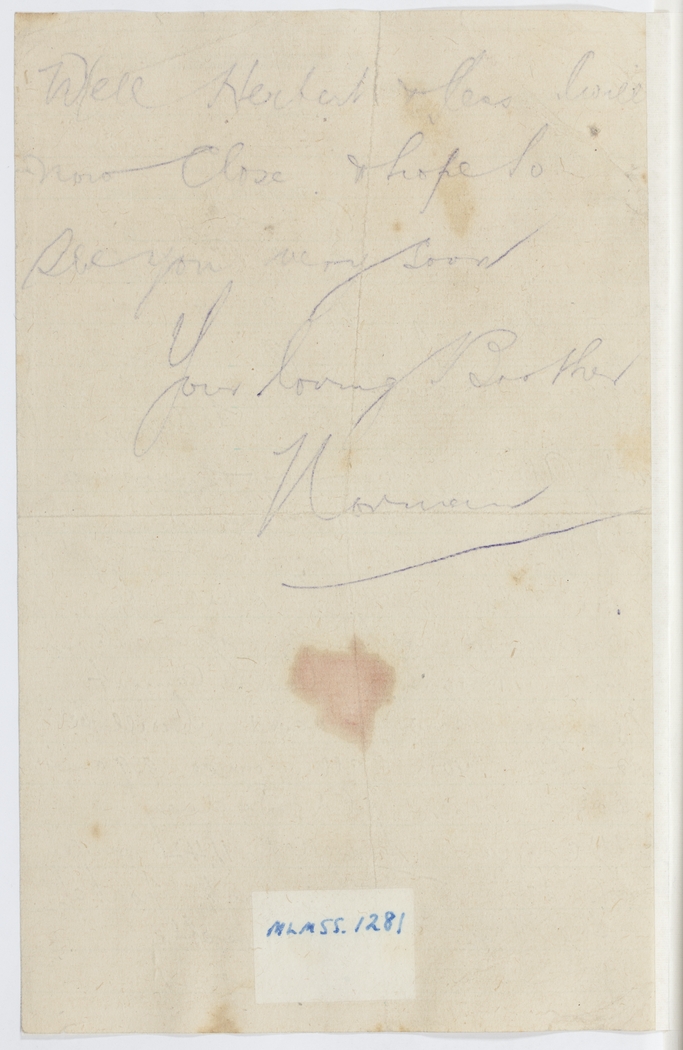 Well Herbert & Les I will
now Close & hope to
see you very soon
Your loving Brother
Norman
MLMSS. 1281